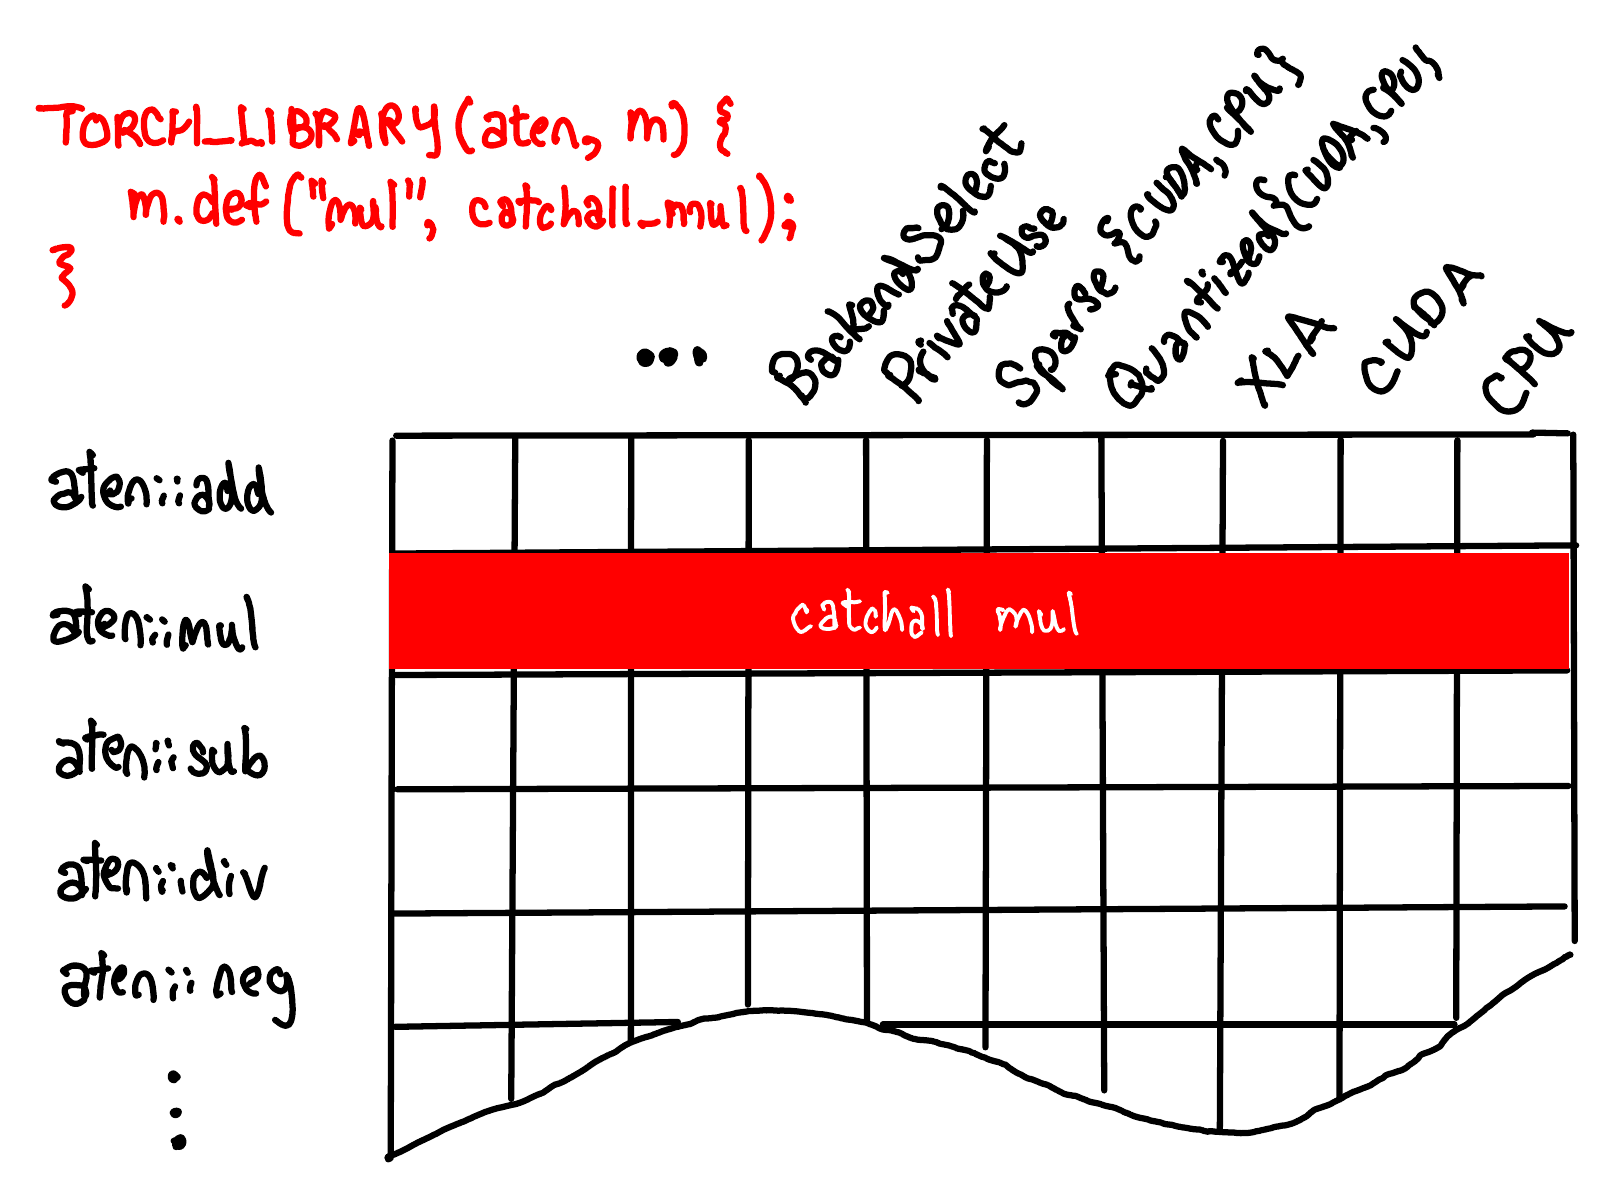 TORCH_LIBRARY(aten, m) {
m.def("mul", catchall_mul);
}
...
BackendSelect
PrivateUse
Sparse{CUDA,CPU}
Quantized{CUDA,CPU}
XLA
CUDA
CPU
aten::add
aten::mul
catchall mul
aten::sub
aten::div
aten::neg
⋮